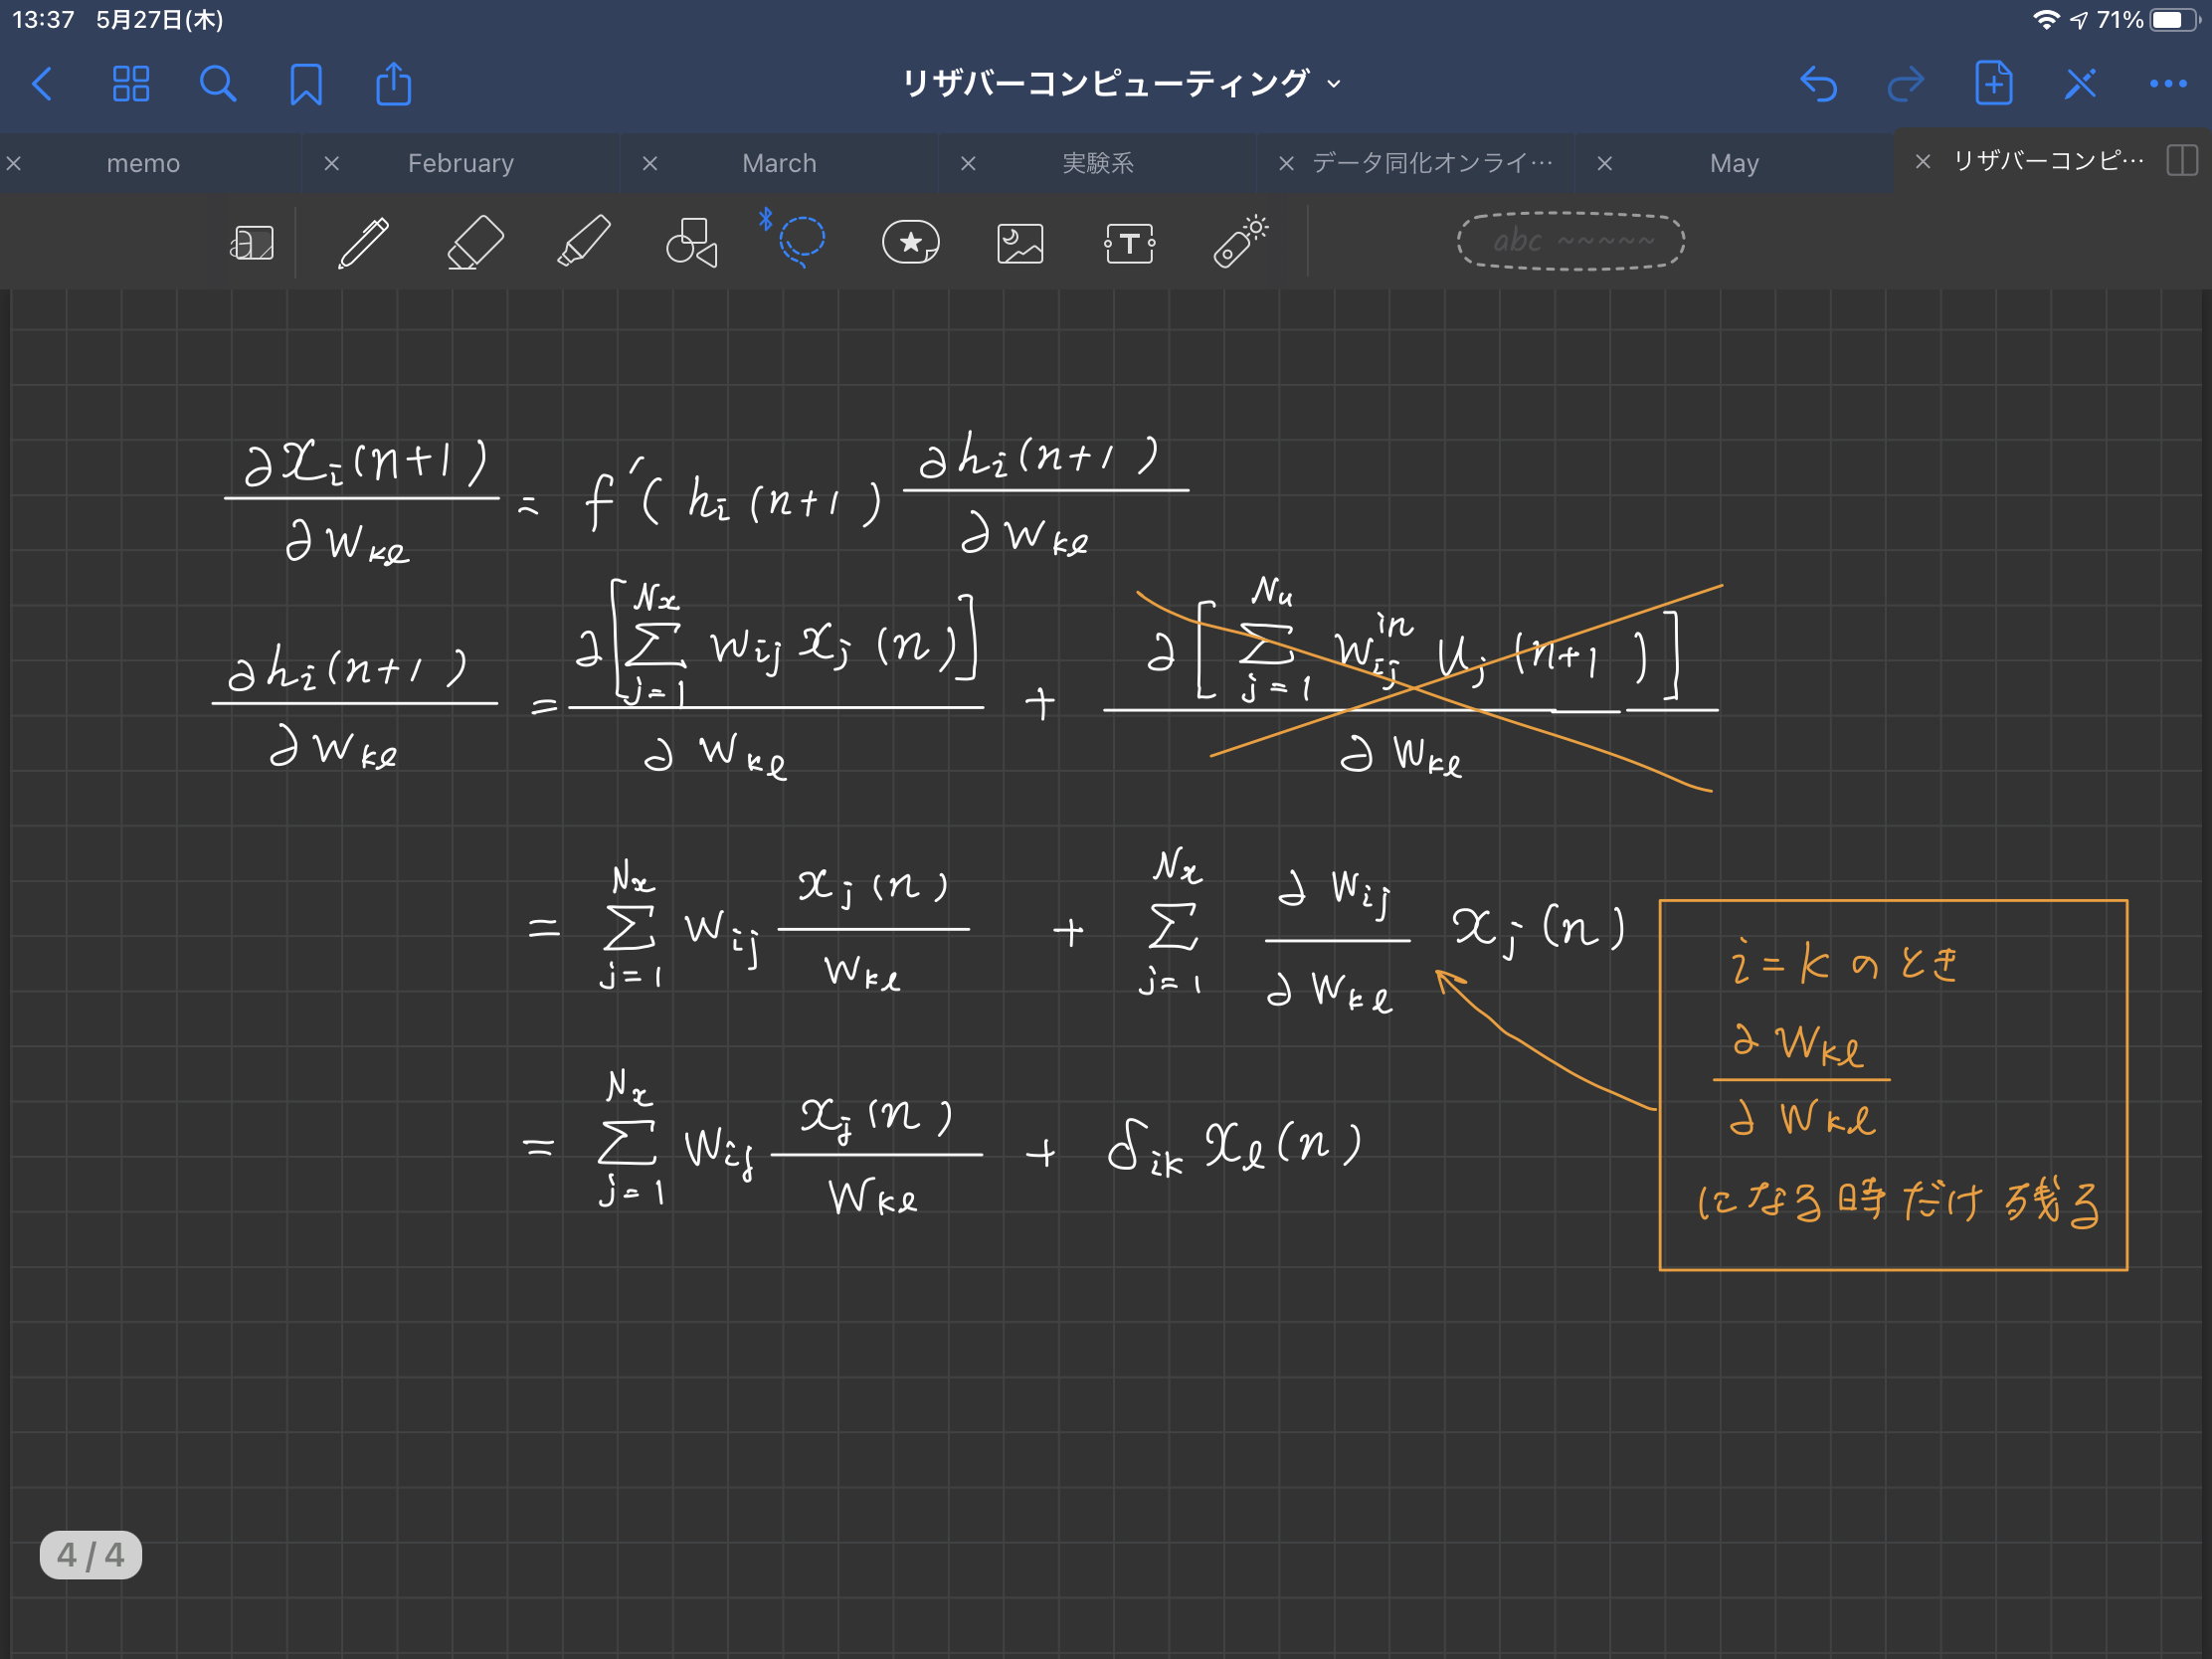 13:37 5月27日(木) 71%
リザバーコンピューティング
memo February March 実験系 データ同化オンライ… May リザバーコンピ…
abc ~~~~~
∂xᵢ(n+1)/∂w_kl = f'(hᵢ(n+1) ∂hᵢ(n+1)/∂w_kl
∂hᵢ(n+1)/∂w_kl = ∂[Σ_{j=1}^{Nx} w_ij x_j(n)]/∂w_kl + ∂[Σ_{j=1}^{Nu} w_ij^in u_j(n+1)]/∂w_kl
= Σ_{j=1}^{Nx} w_ij x_j(n)/w_kl + Σ_{j=1}^{Nx} ∂w_ij/∂w_kl x_j(n)
= Σ_{j=1}^{Nx} w_ij x_j(n)/w_kl + δ_ik x_l(n)
i=kのとき
∂w_kl/∂w_kl
になる時だけ残る
4 / 4